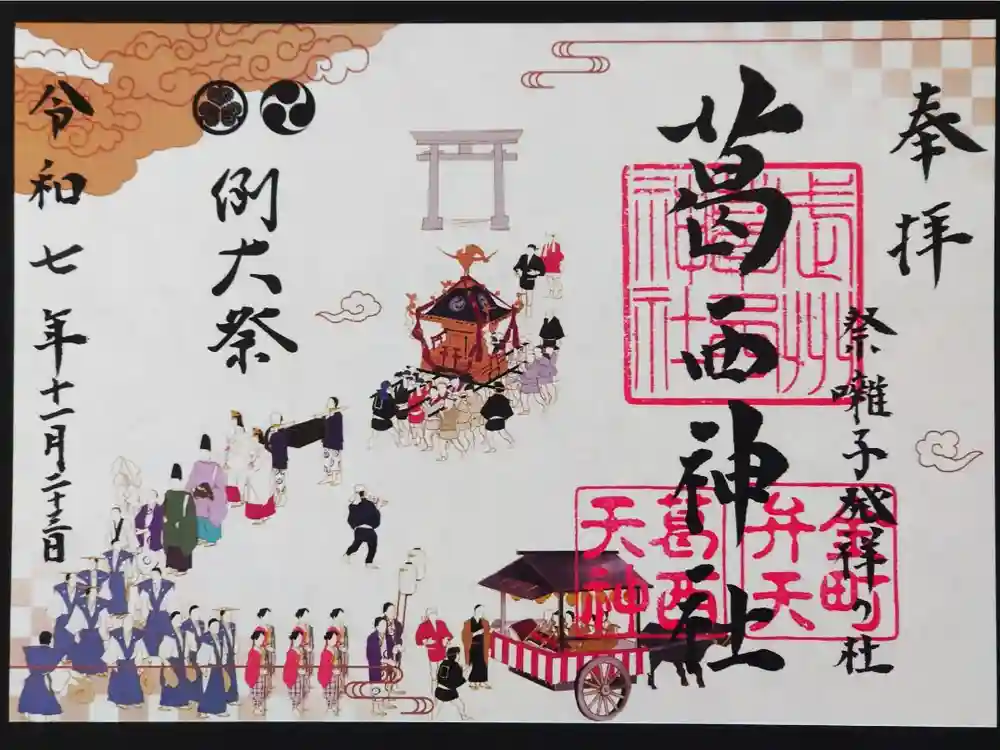 奉拝
祭囃子発祥の社
葛西神社
武州葛西神社
金町弁天
葛西天神
例大祭
令和七年十一月二十三日